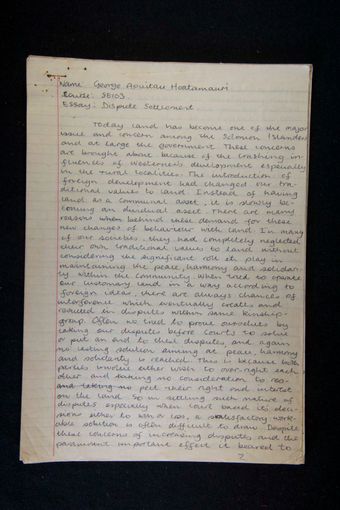 Name: George Apuitau Hoatamauri
Course: SE103.
Essay: Dispute Settlement.
Today land has become one of the major
issue and concern among the Solomon Islanders
and at large the government. These concerns
are brought about because of the trashing in-
fluences of westerners development especially
in the rural localities. The introduction of
foreign development had changed our tra-
ditional values to land. Instead of having
land as a communal asset, it is slowly be-
coming an individual asset. There are many
reasons when behind these demand for these
new changes of behaviour with land. In many
of our societies, they had completely neglected
their own traditional values to land without
considering the significant roll it play in
maintaining the peace, harmony and solidar-
ity within the community. When tried to operate
our customary land in a way according to
foreign ideas, there are always chances of
interference which eventually creats and
resulted in disputes within same kinship-
group. Often we tried to prove ourselves by
taking our disputes before Courts to solve
or put an end to these disputes, and again
no lasting solution aiming at peace, harmony
and solidarity is reached. This is because both
parties involve either wish to over-right each
other and taking no consideration to rea-
and taking no peel their right and interest
on the land. So in settling such nature of
disputes especially when Court based its deci-
sions either to win or loss, a satisfactory work-
able solution is often difficult to draw. Despite
these concerns of increasing disputes and the
paramount important effect it beared to